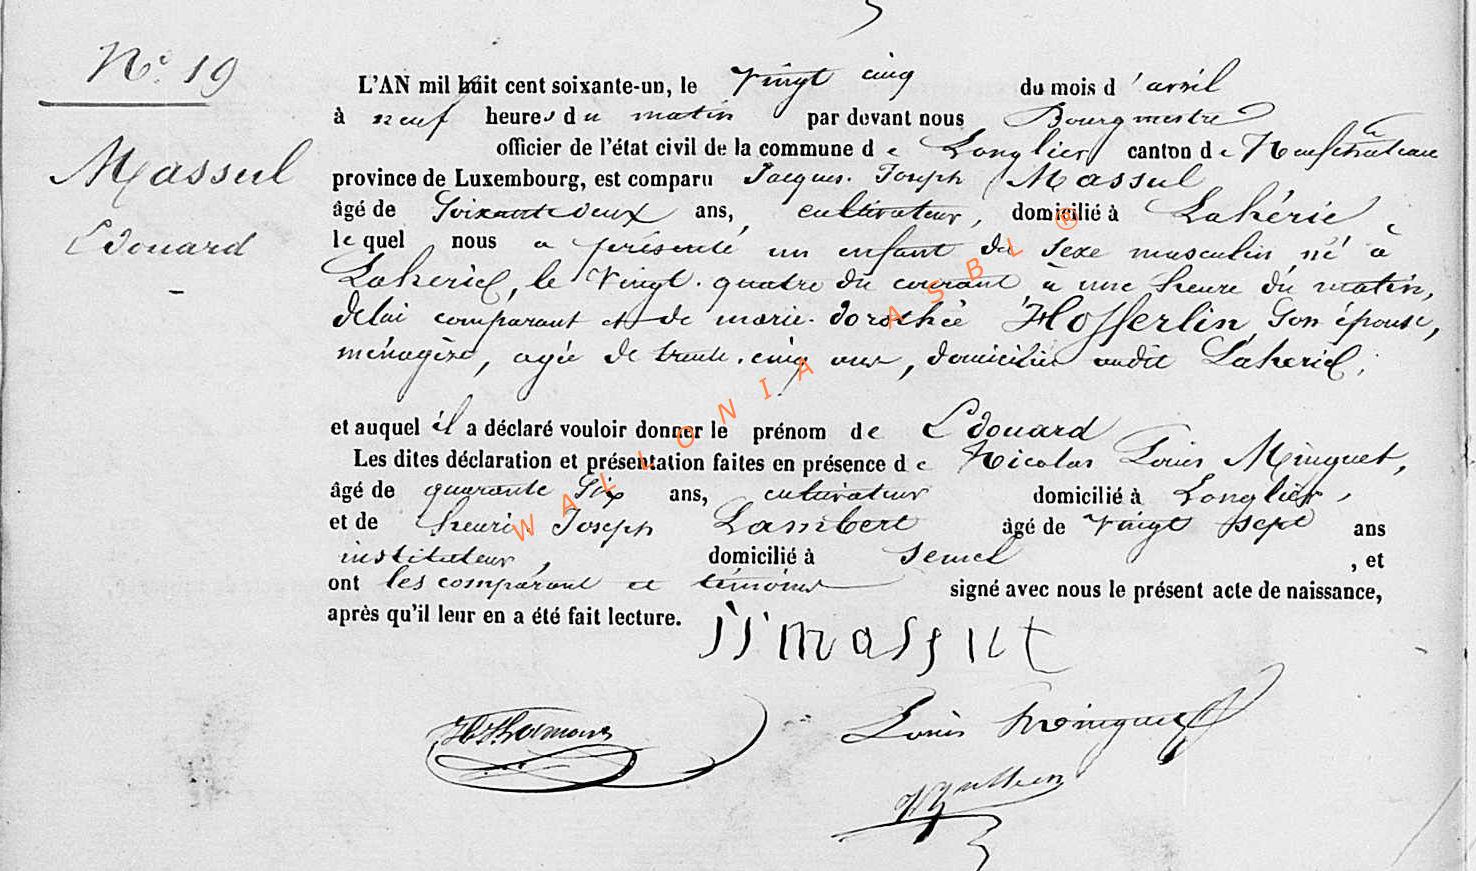 N° 19
Massul
Edouard
L'AN mil huit cent soixante-un, le vingt cinq du mois d'avril
à neuf heures du matin par devant nous Bourgmestre
officier de l'état civil de la commune de Longlier canton de Neufchateau
province de Luxembourg, est comparu Jacques Joseph Massul
âgé de Soixante deux ans, cultivateur, domicilié à Lahérie
lequel nous a présenté un enfant du sexe masculin né à
Laherie, le vingt-quatre du courant à une heure du matin,
de lui comparant et de marie-dorothée Hofferlin Son épouse,
ménagère, agée de trente-cinq ans, domiciliée audit Laherie;
et auquel il a déclaré vouloir donner le prénom de Edouard
Les dites déclaration et présentation faites en présence de Nicolas Louis Minguet,
âgé de quarante Six ans, cultivateur domicilié à Longlier,
et de henri Joseph Lambert âgé de vingt sept ans
instituteur, domicilié à Semel, et
ont les comparant et témoins signé avec nous le présent acte de naissance,
après qu'il leur en a été fait lecture.
JJ massul
Louis minguet
WALLONIA ASBL ®